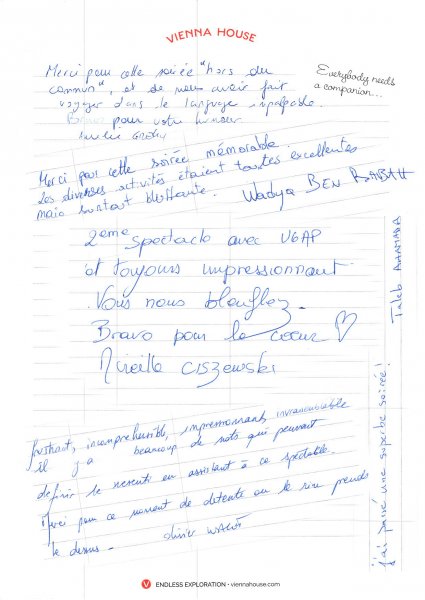 VIENNA HOUSE
Everybody needs
a companion...
Merci pour cette soirée "hors du
commun", et de nous avoir fait
voyager dans le language impalpable.
Bravo pour votre humour
Merci pour cette soirée mémorable.
Les diverses activités étaient toutes excellentes
mais surtout bluffante.
Wadya BEN RABAH
2eme spectacle avec UGAP
et toujours impressionnant
Vous nous bleuffez.
Bravo pour le coeur ♡
Mireille CISZEWSKI
j'ai passé une superbe soirée!
Taleb AHAMADA
frustrant, incompréhensible, impressionnant,
il y a beaucoup de mots qui peuvent
définir le ressenti en assistant à ce spectacle.
Merci pour ce moment de detente ou le rire prends
le dessus.
olivier
V ENDLESS EXPLORATION • viennahouse.com